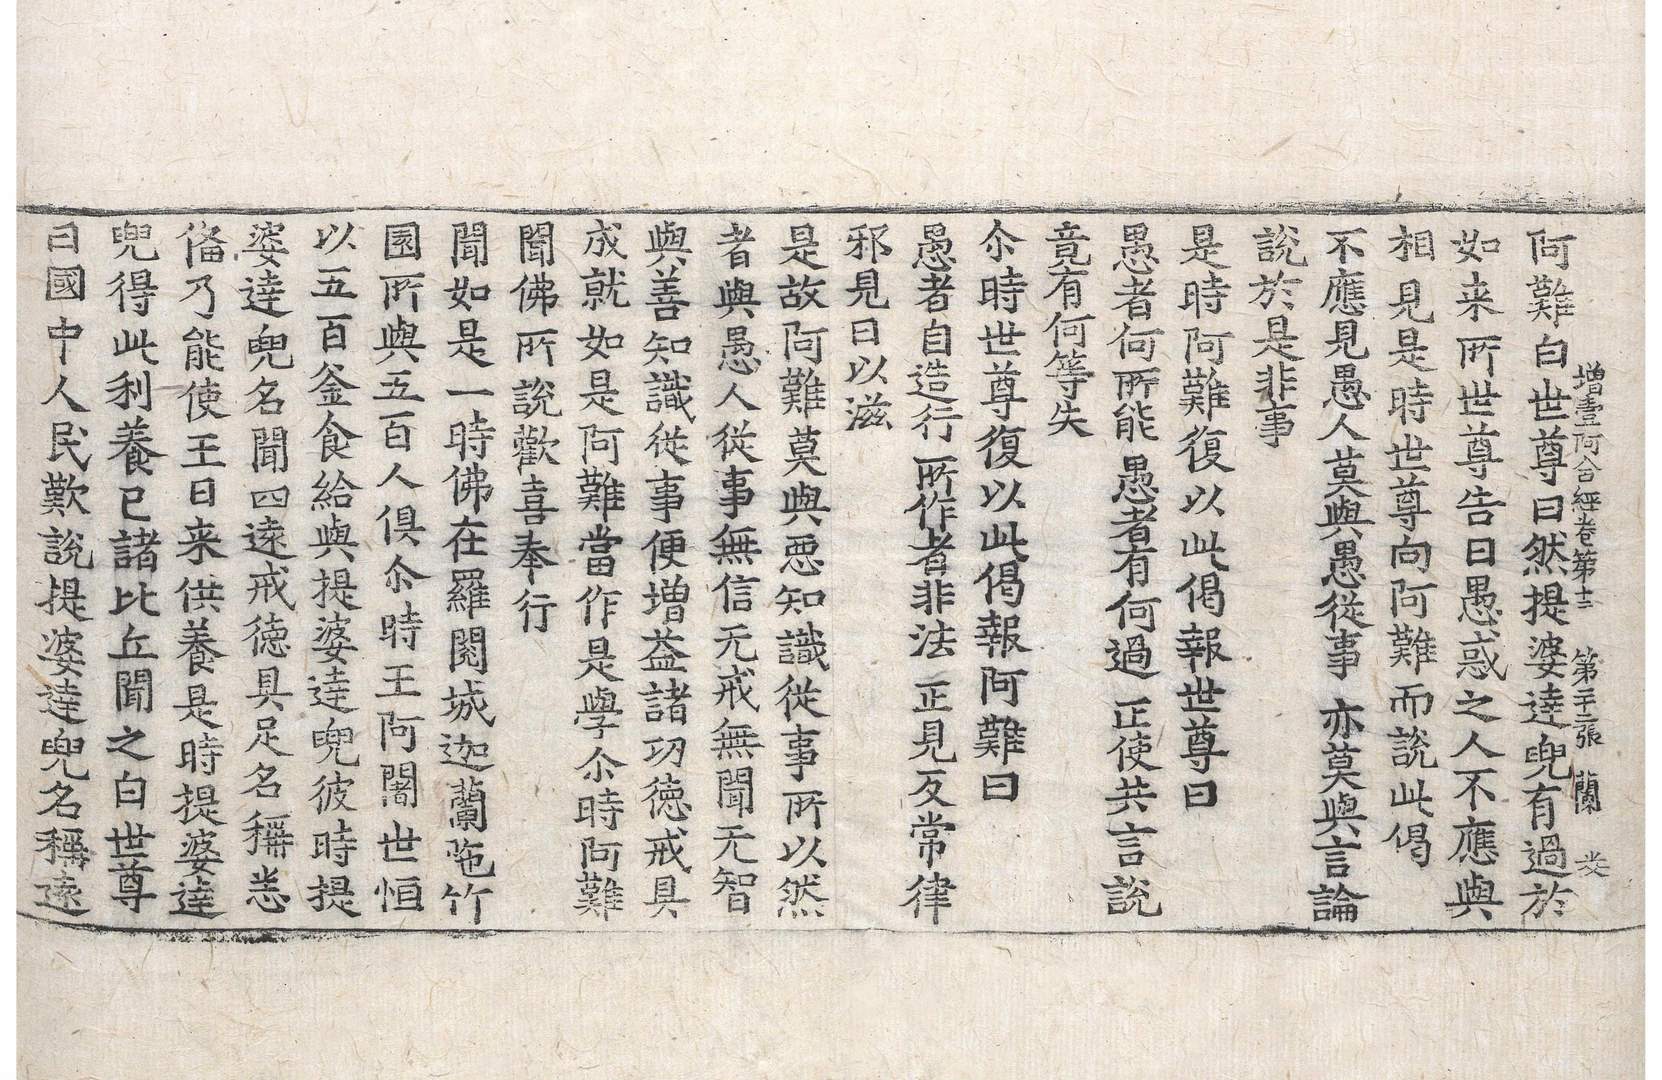 增壹阿含經卷第十二 第二十二張 蘭
阿難白世尊曰然提婆達兜有過於
如来所世尊告曰愚惑之人不應與
相見是時世尊向阿難而說此偈
不應見愚人 莫與愚從事 亦莫與言論
說於是非事
是時阿難復以此偈報世尊曰
愚者何所能 愚者有何過 正使共言說
竟有何等失
尒時世尊復以此偈報阿難曰
愚者自造行 所作者非法 正見反常律
邪見日以滋
是故阿難莫與惡知識從事所以然
者與愚人從事無信无戒無聞无智
與善知識從事便增益諸功德戒具
成就如是阿難當作是學尒時阿難
聞佛所說歡喜奉行
聞如是一時佛在羅閱城迦蘭陁竹
園所與五百人俱尒時王阿闍世恒
以五百釜食給與提婆達兜彼時提
婆達兜名聞四遠戒德具足名稱悉
俻乃能使王日来供養是時提婆達
兜得此利養已諸比丘聞之白世尊
曰國中人民歎說提婆達兜名稱遠